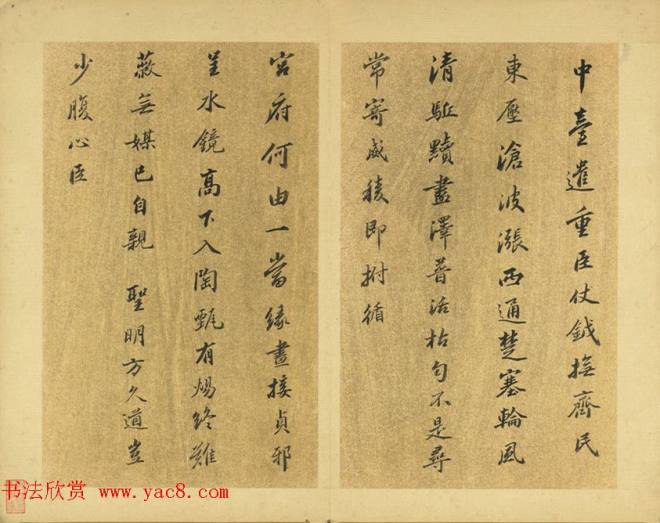 中臺遣重臣仗鉞撫齊民
東壓滄波漲西通楚塞輪風
清駈黷盡澤普活枯勻不是尋
常寄威稜即拊循
宮府何由一當緣晝接貞邪
呈水鏡高下入陶甄有煬終難
蔽無媒已自親 聖明方久道豈
少腹心臣
书法欣赏 www.yac8.com